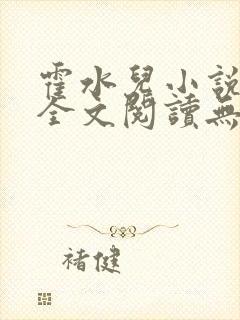 霍水兒小說
全文閱讀無
褚健